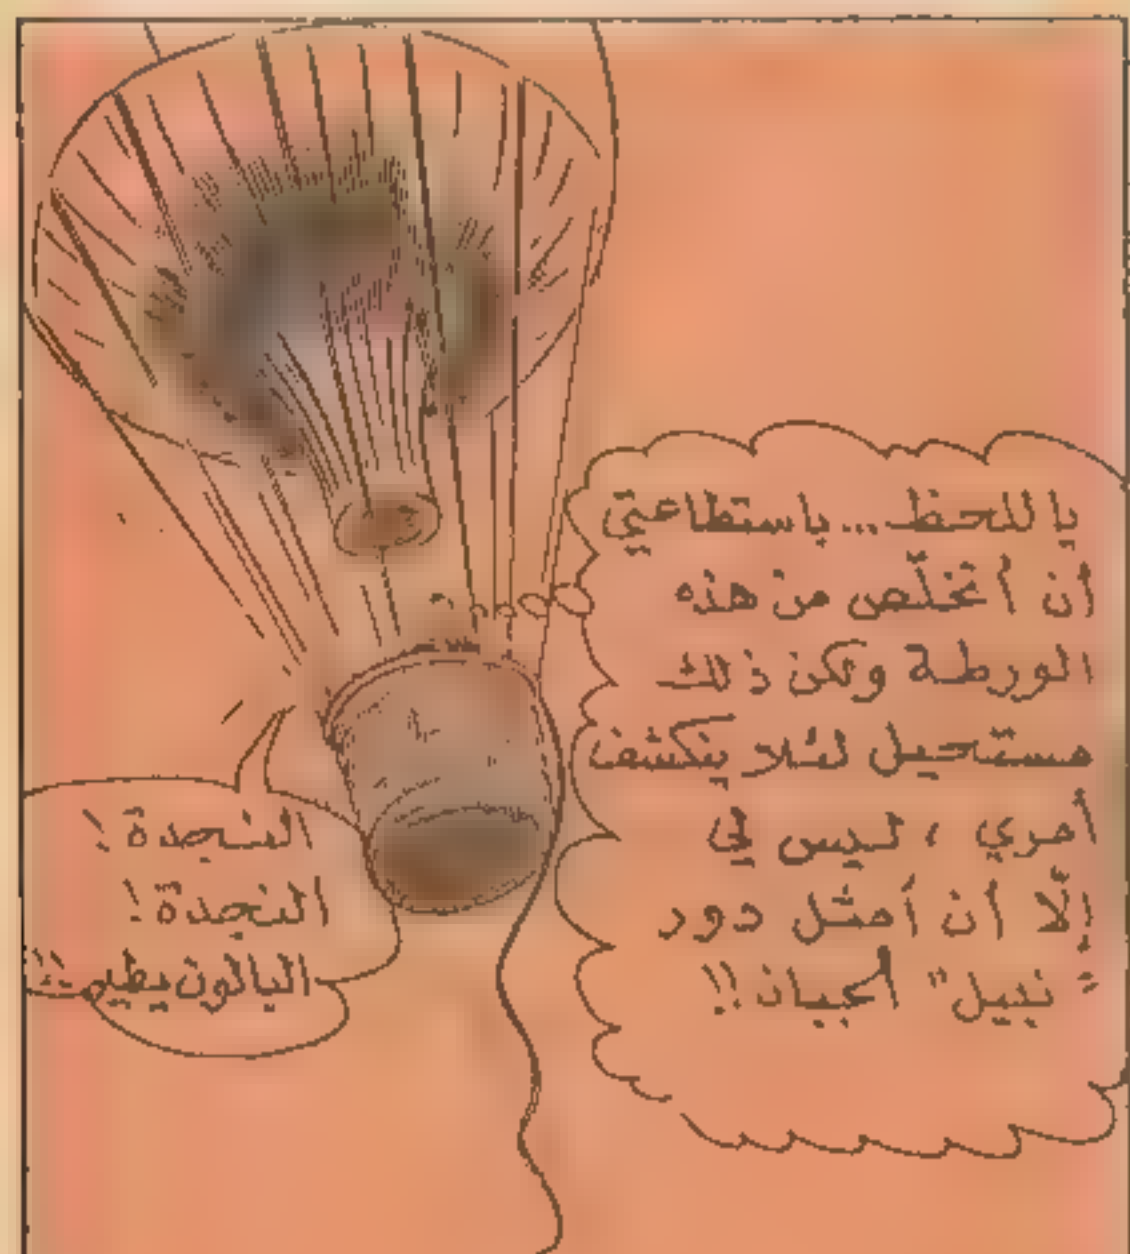 يا للحظ... باستطاعتي
أن أتخلّص من هذه
الورطة ولكن ذلك
مستحيل لئلا ينكشف
أمري ، ليس لي
إلّا أن أمثل دور
" نبيل " الجبان !!
النجدة !
النجدة !
البالون يطير !!